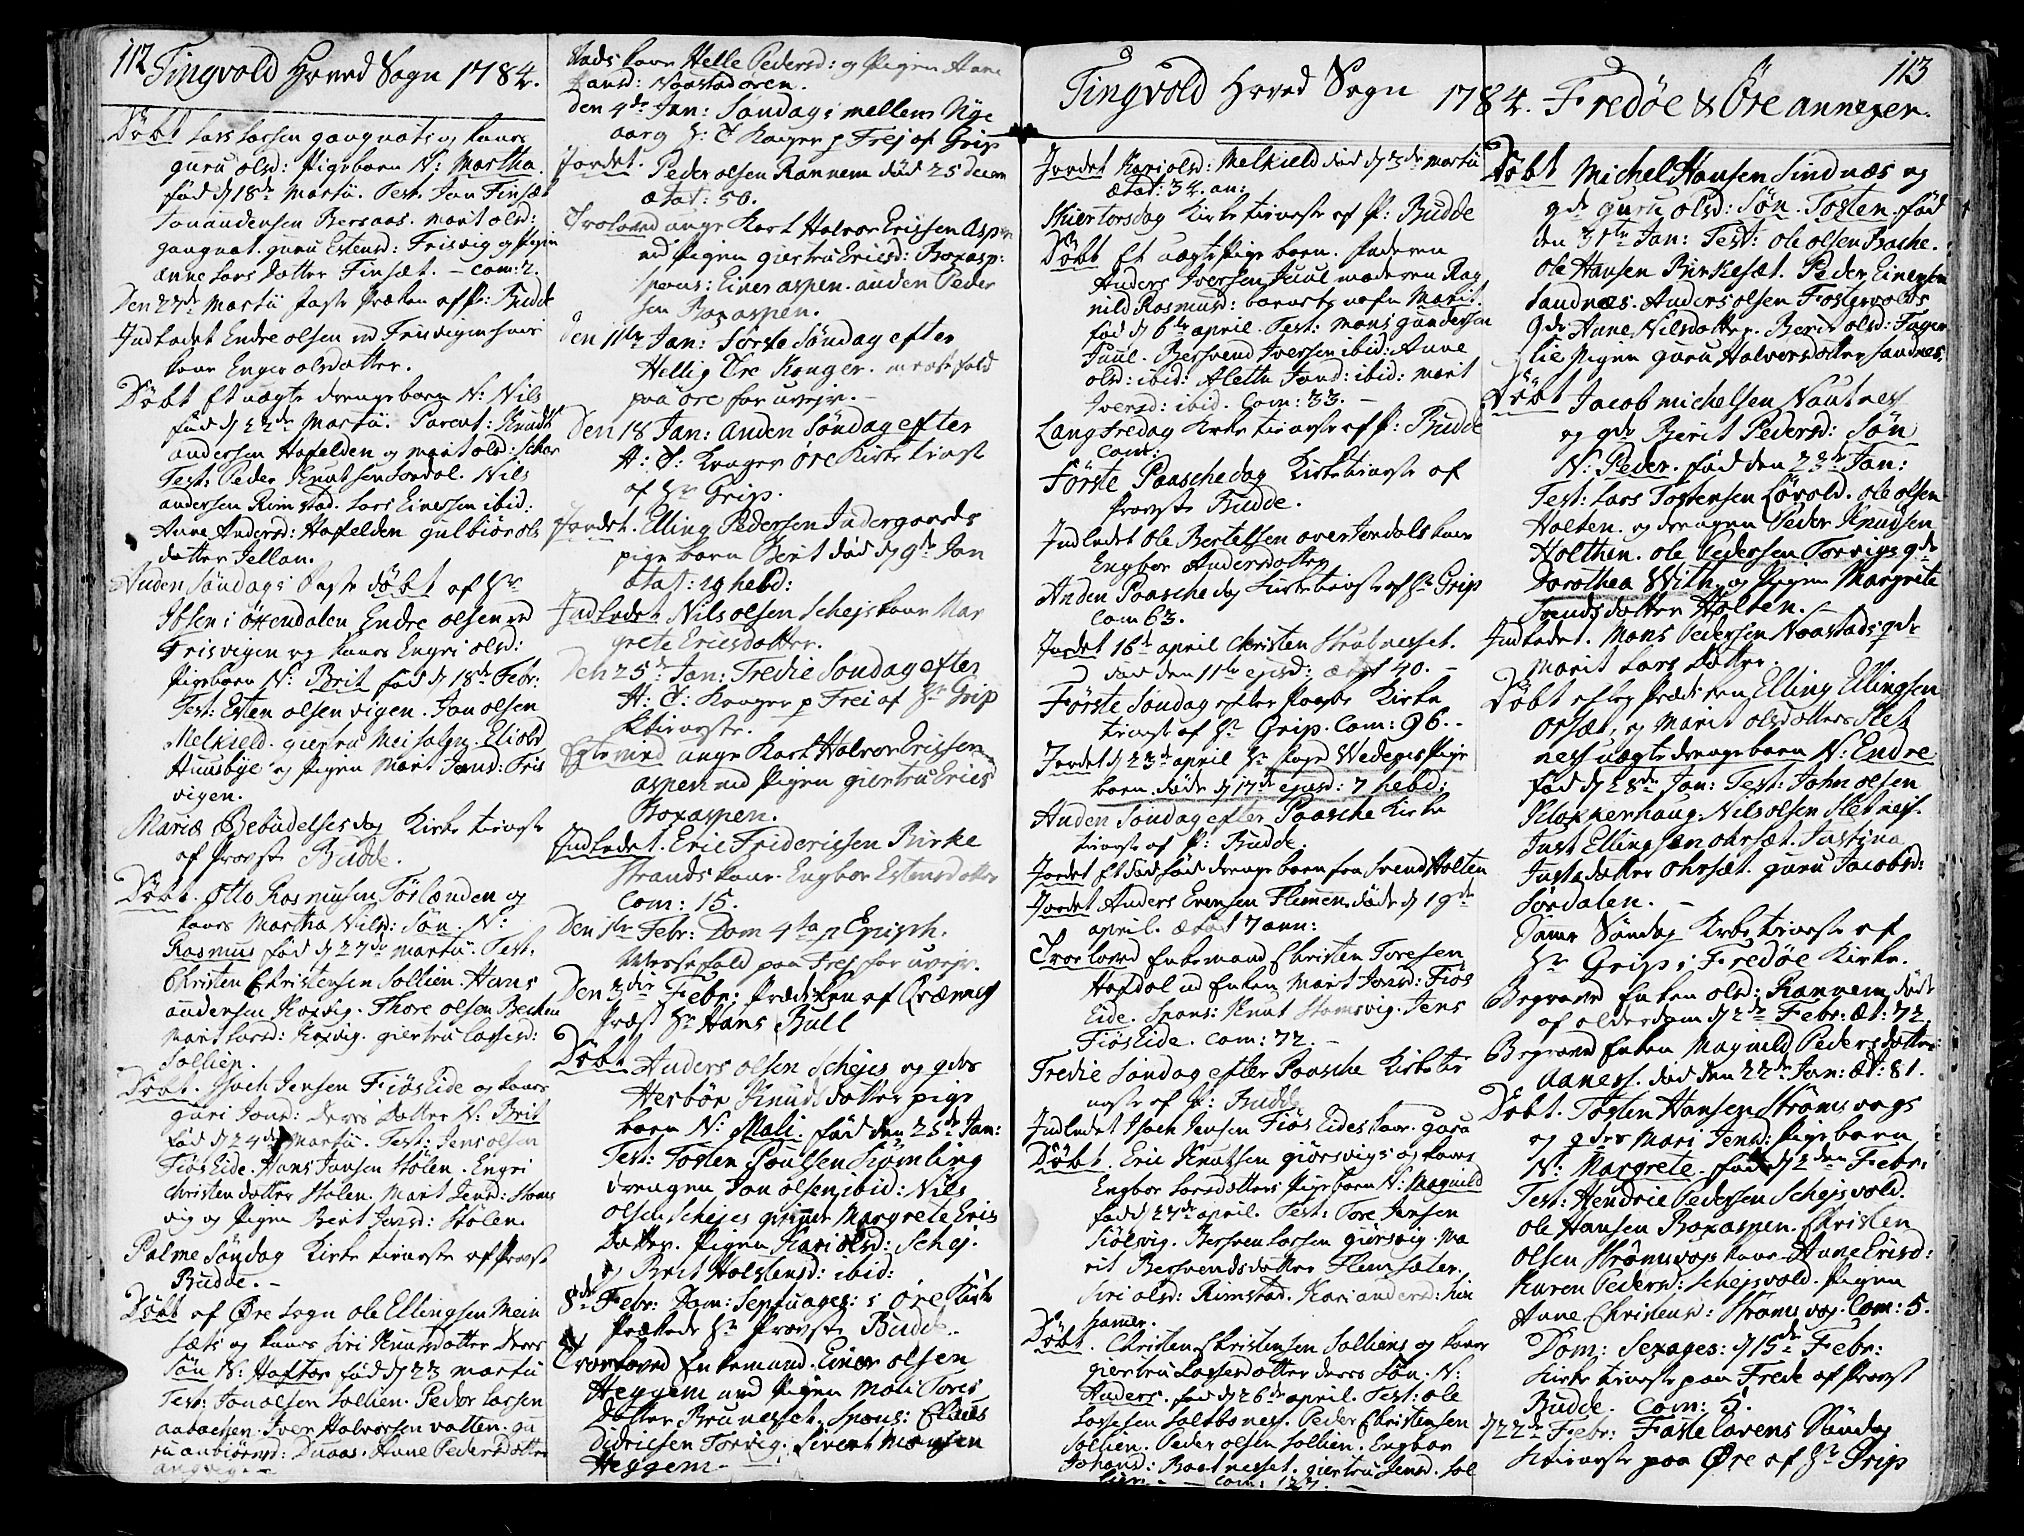 112 Tingvold Hoved Sogn 1784.
Döbt Lars Larsen gangnats og kones
guru olsd: Pigebarn N: Martha.
fød d 18de Martii. Test: Jon Finsæt
Jon andersen Bersaas. marit olsd:
gangnat. guru Estensd: Frisvig og Pigen
anne Lars datter Finsæt. – com: 2.
Den 27de Martii faste Præken af P: Budde
Indledet Endre olsen ved Frisvigen hans
kone Enger olsdatter.
Döbt Et uægte drengebarn N: Nils
fød d 22de Martii. Parent: Knudt
andersen Hafelden og marit olsd:
Test: Peder Knutsen Jordal. Nils
andersen Rimstad. Lars Einersen ibid:
Anne Andersd: Hafelden gulbiör ols
datter Jellan.
Anden Søndags faste döbt af Hr
Ibsen i Öxendalen Endre olsen ved
Frisvigen og kones Engri olsd:
Pigebarn N: Brit fød d 18de Febr:
Test: Esten olsen vigen. Jon olsen
Melkield. giertru Meisalen.
Huusbye og Pigen Marit Jonsd: Fris
vigen.
Mariæ Bebudelses dag Kirke tieneste
af Provst Budde.
Döbt. Otto Rasmusen Törlænden og
kones Martha Nilsd: Søn N:
Rasmus fød d 27de martii. Test:
Christen Christensen Sollien. Hans
andersen Koxvig. Thore olsen Bechen
Marit Larsd: Koxvig. giertru Lassesd:
Sollien.
Döbt. Isach Jensen Fiös Eide og kones
guri Jonsd: deres datter N: Brit
fød d 24de Martii. Test: Jens olsen
Fiös Eide. Hans Jansen Stolen. Engri
Christendatter Stolen. Marit Jensd: Stoms
vig og Pigen Berit Jonsd: Stolen.
Palme Søndag Kirke tieneste af Provst
Budde. –
Döbt af Øre Sogn ole Ellingsen Mein
sæts og kones Siri Knudsdatter deres
Søn N: Haftor fød d 23 martii
Test: Jon olsen Sollien. Peder Larsen
aabachen. Iver Halvorsen vatten. gu
ru anbiörnsd: Duaas. Anne Pedersdatter
angvig. –
stads kone Helle Pedersd: og Pigen Anne
Hansd: Naastad ören.
den 4de Jan: Søndag: mellem Nye
aar og H: 3 Konger p Frej af Grip
Jordet. Peder olsen Rannem død 25 Decem
ætat: 50.
Trolovet unge Karl Halvor Erichsen Aspen
ved Pigen giertru Ericsd: Boxasp:
spons: Einer aspen. anden Peder
sen Boxaspen.
den 11te Jan: Første Søndag efter
Hellig Tre Konger. messefald
paa Øre for uvejr. –
Den 18 Jan: Anden Søndag efter
H: 3: Konger Øre Kirke tienest
af Hr Grip.
Jordet. Elling Pedersen Indergaards
pige barn Berit død d 9de Jan
ætat: 19 hebd:
Indledet Nils olsen Schejs kone Mar
grete Ericsdatter.
Den 25de Jan: Tredie Søndag efter
H: 3: Konger p Frei af Hr Grip
ktieneste.
Egteviet unge Karl Halvor Ericsen
aspen ved Pigen giertru Ericsd
Boxaspen.
Indledet. Eric Friderichsen Birke
Strands kone. Engbor Estensdatter
Com: 15.
Den 1te Febr: Dom 4ta p Episph.
Messefald paa Frej for uvejr.
Den 3die Febr: Prædiken af Qværnes
Præst Hr Hans Bull
Döbt. Anders olsen Schejes og gdes
Herbör Knudsdatter pige
barn N: Mali. fød den 25de Jan:
Test: Tosten Poulsen Siömling
drengen Jon olsen, ibid: Nils
olsen Schejes quinde Margrete Erics
Datter. Pigen Kari olsd: Schej.
og Brit Holstensd: ibid:
8de Febr: Dom: Septuages: i Øre Kirke
Prækede Hr Provst Budde.
Troelovet Enkemand. Einer olsen
Heggem med Pigen Mali Tores
Datter Brunesset. Spons: Claus
Didriesen Torvig. Sivert Mogensen
Heggem –
Tingvold Hoved Sogn 1784. Fredøe & Øre annexer. 113
Jordet Kari olsd: Melkield død d 3de Martii
ætat: 34. an:
Skiertorsdag Kirke tieneste af P: Budde
Döbt Et uægte Pige barn. Faderen
Anders Iversen Juul moderen Rag
nild Rasmusd: barnets nafn Marit.
fød d 6te april. Test: Mons gundersen
Juul. Bersvend Iversen ibid: Anne
olsd: ibid: Alethe Jonsd: ibid: marit
Iversd: ibid. Com: 33. –
Lang Fredag Kirke tieneste af P: Budde
Com:
Første Paaschedag Kirketieneste af
Provst Budde.
Indledet ole Bertelsen over Jordals kone
Engbor Andersdatter
Anden Paasche dag Kirketieneste af Hr Grip
Com 63.
Jordet 16de april Christen Strubnesset.
død den 11te ejusd: ætat 40. –
Første Søndag efter Paaske Kirke
tieneste af Hr Grip. Com: 96. –
Jordet d 23de april Hr Wedeges Pige
barn. døde d 17de ejusd: 7 hebd:
Anden Søndag efter Paasche Kirke
tieneste af P: Budde.
Jordet Et død fød drenge barn fra Svend Holten
Jordet Anders Evensen Flemmen døde d 19de
april. ætat 7 ann:
Troelovet Enkemand Christen Toresen
Hafdal ved Enken Marit Jonsd: Fiös
Eide. Spons: Knut Stomsvig. Jens
Fiös Eide. Com: 72. –
Tredie Søndag efter Paasche Kirke tie
neste af P: Budde
Indledet Isach Jensen Fiös Eides kone: guru
Döbt. Eric Knutsen giörsvigs og kones
Engbor Larsdatters Pigebarn N: Magnild
fød d 27de april. Test: Tore Jensen
Siölsvig. Bersven Larsen giörsvig. Ma
rit Bersvendsdatter Flemsæter.
Siri olsd: Rimstad. Kari andersd: Hei
hamer.
Döbt. Christen Christensen Solliens og kones
giertru Lassesdatter deres Søn. N:
Anders. fød d 26de april. Test: ole
Lassesen Saltbones. Peder Christensen
Sollien. Peder olsen Sollien. Engbor
Johansd: Boetnesset. giertru Jensd: Sol
lien. – Com: 127. –
Döbt Michel Hansen Sindnæs og
gde guru olsd: Søn. Tosten. fød
den 31te Jan: Test: ole olsen Bache.
ole Hansen Birkesæt. Peder Einersen
Sandnæs. Anders olsen Fostervolds
gde Anne Nilsdatter. Berit olsd: Fager
lie Pigen guru Halvorsdatter Sandnes.
Döbt Jacob michelsen Nautnes
og gde Berit Pedersd: Søn
N: Peder. fød den 23de Jan:
Test: Lars Tostensen Lövold. ole olsen
Holten. og drengen Peder Knudsen
Holthen. ole Pedersen Torvigs gde
Dorothea With. og Pigen Margrete
Trondsdatter Holten.
Indledet. Mons Pedersen Naastads gde
Marit Lars Datter.
Döbt efter Prædiken Elling Ellingsen
Orsæt, og Marit olsdatters Slet
nes uægte drengebarn N: Endre
fød d 28de Jan: Test: John olsen
Klokkerhaug. Nils olsen Sletnes.
Just Ellingsen ohrsæt. Justina
Justsdatter ohrsæt. guru Jacobsd:
Sördalen. –
Samme Søndag Kirke tieneste af
Hr Grip i Fredøe Kirke.
Begravet Enken olsd: Rannem, døde
af alderdom d 2de Febr: æt: 72
Begravet Enken Magnild Pedersdatter
Aaness. død den 22de Jan: Æt: 81.
Döbt. Tosten Hansen Strömsvogs
og gdes Mari Jensd: Pigebarn
N: Margrete. fød d 2den Febr:
Test: Hendric Pedersen Schejsvold.
ole Hansen Boxaspen. Christen
olsen Strömsvogs kone Anne Ericsd:
Karen Pedersd: Schejsvold. Pigen
Anne Christensd: Strömsvog. Com: 5.
Dom: Sexages: d 15de Febr:
Kirke tieneste paa Frede af Provst
Budde. Com: 5.
d 22de Febr: Fastelavens Søndag
Ktieneste paa Øre af Hr Grip